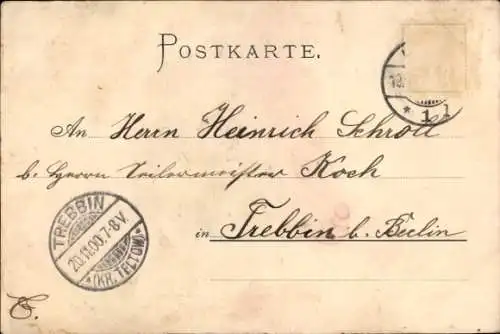 POSTKARTE.
An Herrn Heinrich Schroll
b. Herrn Seilermeister Koch
in Trebbin b. Berlin
TREBBIN
20.11.00.7-8V.
*(KR.TELTOW)*
* 1 1